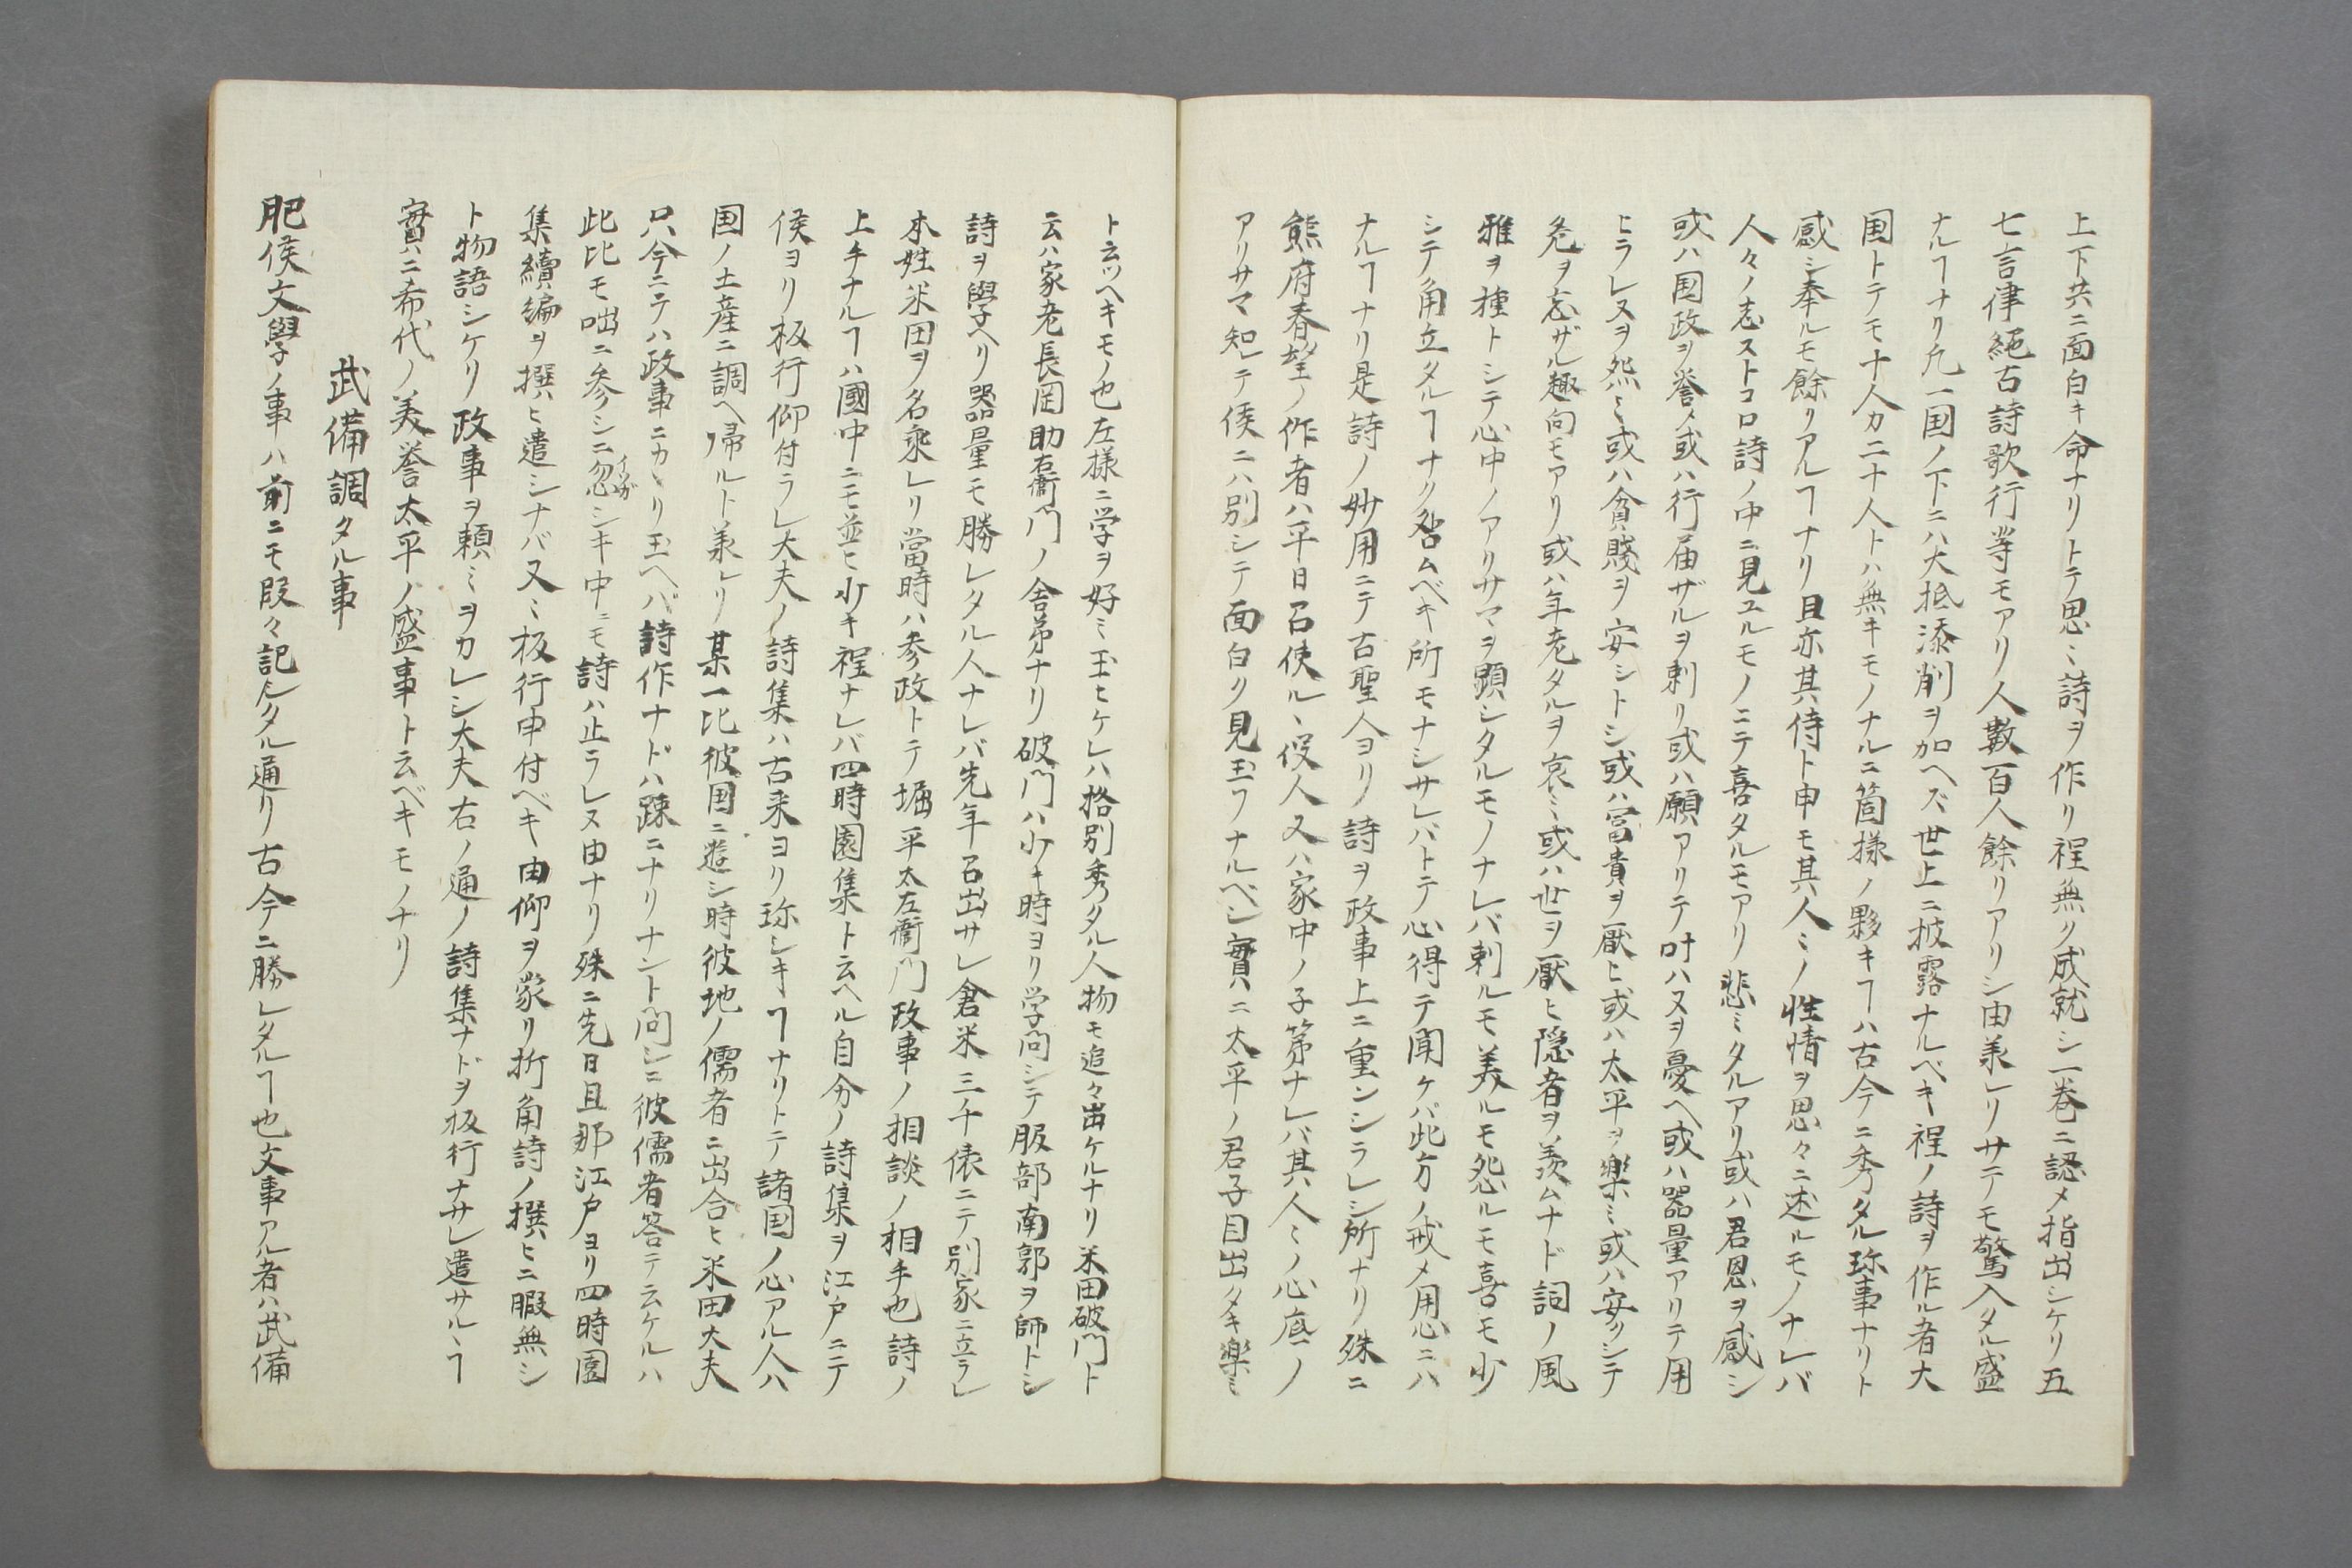 上下共ニ面白キ命ナリトテ思ミ詩ヲ作リ程無ク成就シ一巻ニ認メ指出シケリ五
七言律絶古詩歌行等モアリ人數一百人餘リアリシ由羕レリサテモ驚入タル盛
ナルヿナリ凡一国ノ下ニハ大抵添削ヲ加ヘズ世上ニ披露ナルベキ程ノ詩ヲ作ル者大
国トテモ十人カ二十人トハ無キモノナルニ箇様ノ夥キヿハ古今ニ秀タル珎事ナリト
感シ奉ルモ餘リアルヿナリ且亦其侍ト申モ其人ミノ性情ヲ思々ニ述ルモノナレバ
人々ノ志ストコロ詩ノ中ニ見ユルモノニテ喜タルモアリ悲ミタルアリ或ハ君恩ヲ感シ
或ハ国政ヲ誉メ或ハ行届ザルヲ刺リ或ハ願アリテ叶ハヌヲ憂ヘ或ハ器量アリテ用
ヒラレヌヲ怨ミ或ハ貪賤ヲ安シトシ或ハ冨貴ヲ厭ヒ或ハ太平ヲ楽ミ或ハ安クシテ
危ヲ忘ザル趣向モアリ或ハ年老タルヲ哀ミ或ハ世ヲ厭ヒ隠者ヲ羨ムナド詞ノ風
雅ヲ種トシテ心中ノアリサマヲ顕シタルモノナレバ刺ルモ美ルモ怨ルモ喜モ少
シテ角立タルヿナク咎ムベキ所モナシサレバトテ心得テ聞ケバ此方ノ戒メ用心ニハ
ナルヿナリ是詩ノ妙用ニテ古聖人ヨリ詩ヲ政事上ニ重ンシラレシ所ナリ殊ニ
熊府春望ノ作者ハ平日召使ルヽ役人又ハ家中ノ子第ナレバ其人ミノ心底ノ
アリサマ知レテ侯ニハ別シテ面白ク見玉フナルベシ實ニ太平ノ君子目出タキ楽ミ
ト云ツヘキモノ也左様ニ学ヲ好ミ玉ヒケレハ格別秀タル人物モ追々出ケルナリ米田破門ト
云ハ家老長罡助右衛門ノ舎弟ナリ破門ハ少キ時ヨリ学問シテ服部南郭ヲ師トシ
詩ヲ學ヘリ器量モ勝レタル人ナレバ先年召出サレ倉米三千俵ニテ別家ニ立ラレ
本姓米田ヲ名乗レリ當時ハ参政トテ堀平太左衛門政事ノ相談ノ相手也詩ノ
上手ナルヿハ國中ニモ並ヒ少キ程ナレバ四時園集ト云ヘル自分ノ詩集ヲ江戸ニテ
侯ヨリ板行仰付ラレ大夫ノ詩集ハ古来ヨリ珎レキヿナリトテ諸国ノ心アル人ハ
国ノ土産ニ調ヘ帰ルト羕レリ某一比彼国ニ遊シ時彼地ノ儒者ニ出合ヒ米田大夫
只今ニテハ政事ニカヽリ玉ヘバ詩作ナドハ踈ニナリナント問シニ彼儒者答テ云ケルハ
此比モ咄ニ参シニ忽イソガシキ中ニモ詩ハ止ラレヌ由ナリ殊ニ先日且那江戸ヨリ四時園
集續編ヲ撰ヒ遣シナバ又ミ板行申付ベキ由仰ヲ蒙リ折角詩ノ撰ヒニ暇無シ
ト物語シケリ政事ヲ頼ミヲカレシ大夫右ノ通ノ詩集ナドヲ板行ナサレ遣サルヽヿ
實ニ希代ノ美誉太平ノ盛事ト云ベキモノナリ
武備調タル事
肥侯文學ノ事ハ前ニモ段々記シタル通リ古今ニ勝レタルヿ也文事アル者ハ武備